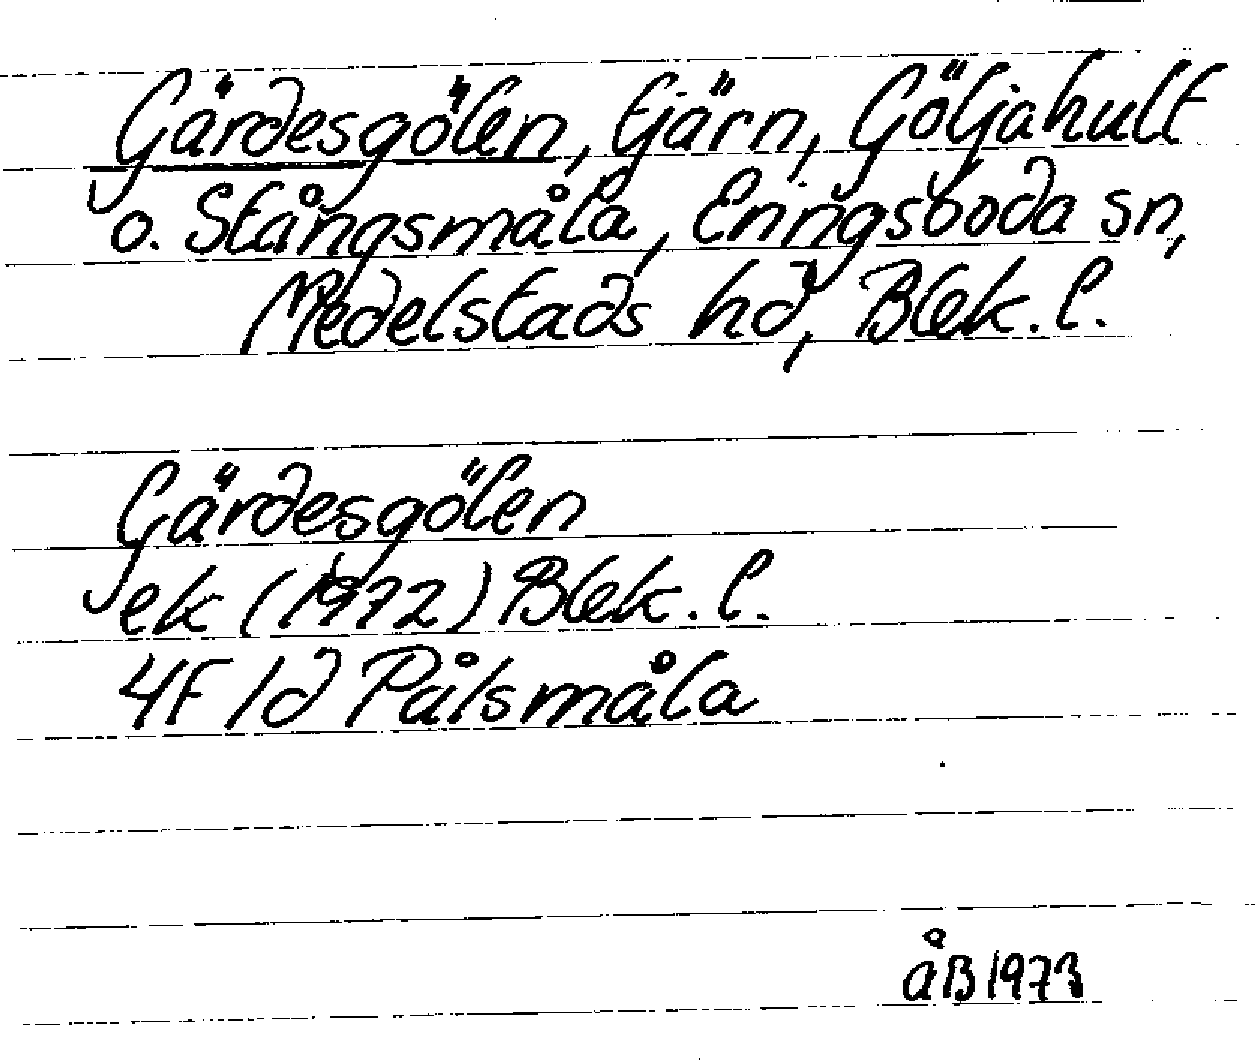 Gärdesgölen, tjärn, Göljahult
o. Stångsmåla, Eringsboda sn,
Medelstads hd, Blek. l.
Gärdesgölen
ek (1972) Blek. l.
4F 1d Pålsmåla
åB 1973